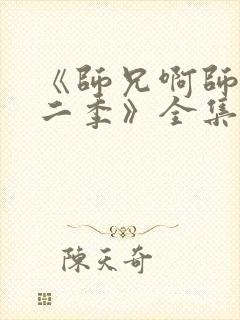 《師兄啊師
二季》全集
陳天奇